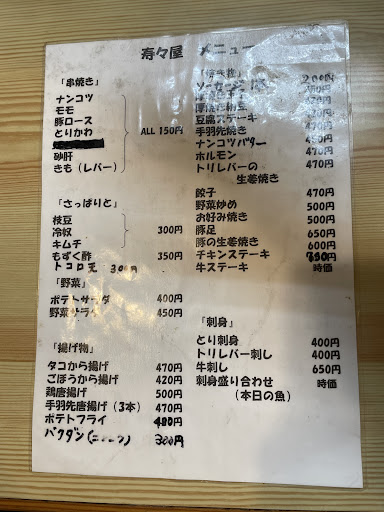 寿々屋 メニュー
「串焼き」
ナンコツ
モモ
豚ロース
とりかわ
砂肝
きも（レバー）
ALL 150円
「さっぱりと」
枝豆
冷奴
キムチ
300円
もずく酢 350円
トコロ天 300円
「野菜」
ポテトサラダ 400円
野菜サラダ 450円
「揚げ物」
タコから揚げ 470円
ごぼうから揚げ 420円
鶏唐揚げ 500円
手羽先唐揚げ（3本） 470円
ポテトフライ
バクダン 300円
豆腐ステーキ
手羽先焼き
ナンコツバター
ホルモン 470円
トリレバーの 470円
生姜焼き
餃子 470円
野菜炒め 500円
お好み焼き 500円
豚足 650円
豚の生姜焼き 600円
チキンステーキ
牛ステーキ 時価
「刺身」
とり刺身 400円
トリレバー刺し 400円
牛刺し 650円
刺身盛り合わせ 時価
（本日の魚）